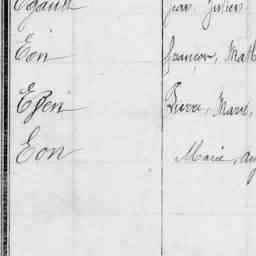 Egault Jean Julien
Eon François, Math
Epen Pierre, Marie,
Eon Marie, Aug